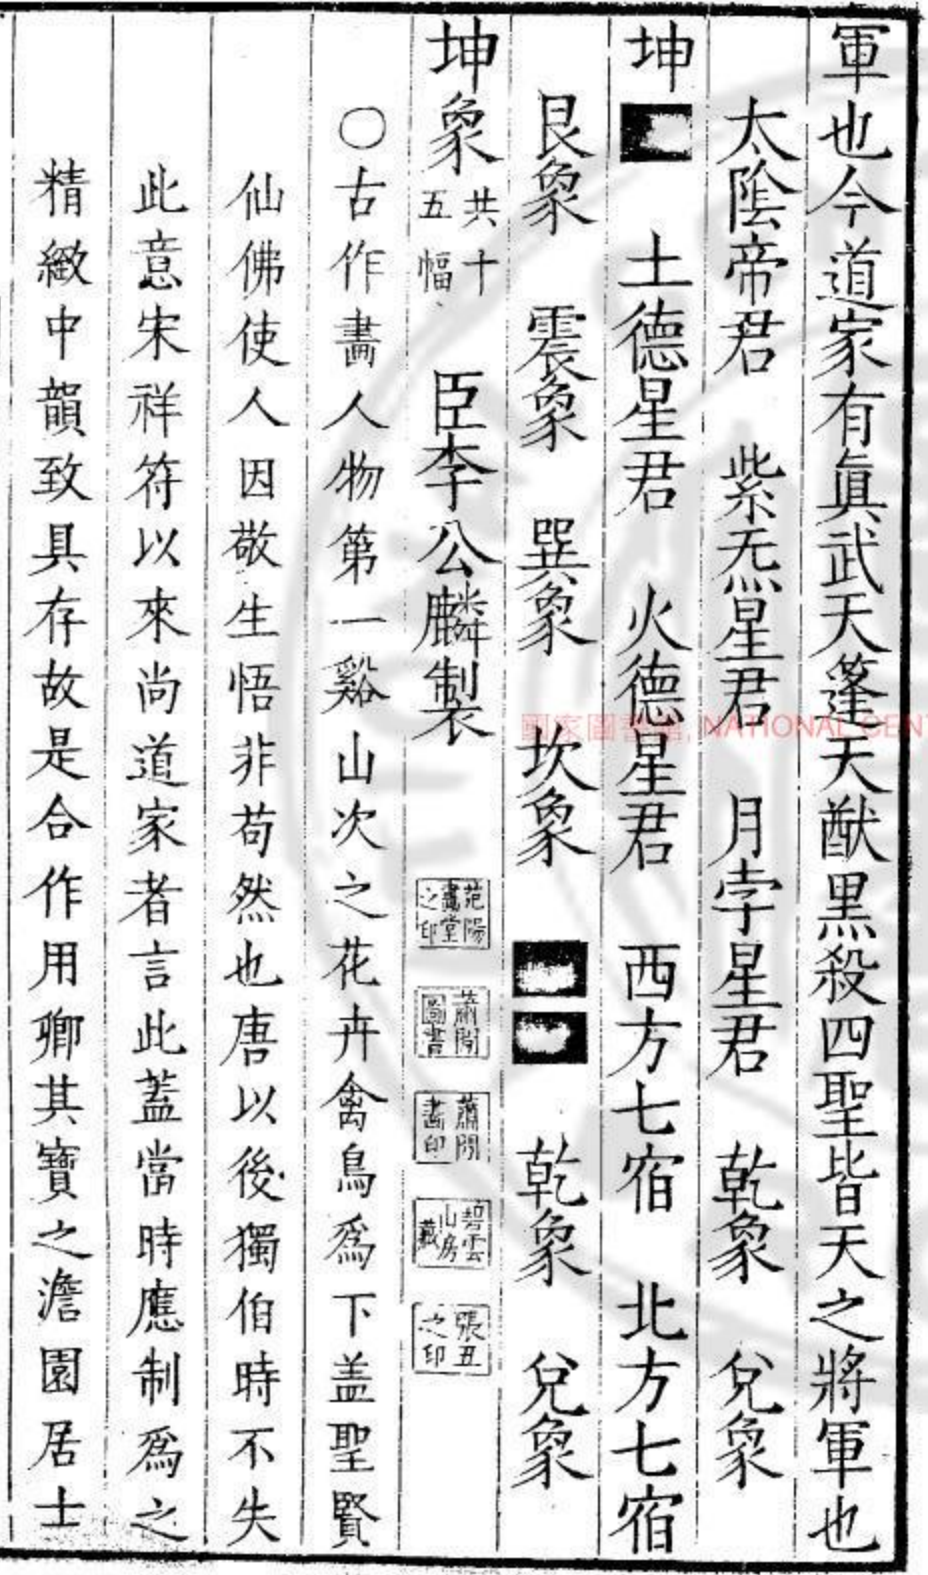 軍也今道家有眞武天蓬天猷黑殺四聖皆天之將軍也
太陰帝君　紫炁星君　月孛星君　乾象　兌象
坤　土德星君　火德星君　西方七宿　北方七宿
艮象　震象　巽象　坎象　乾象　兌象
坤象共十五幅　臣李公麟製　范陽畵堂之印　蕭閒圖書　蕭閒書印　碧雲山房藏　張丑之印
○古作畫人物第一谿山次之花卉禽鳥爲下盖聖賢
仙佛使人因敬生悟非苟然也唐以後獨伯時不失
此意宋祥符以來尚道家者言此蓋當時應制爲之
精緻中韻致具存故是合作用卿其寶之澹園居士
國家圖書館, NATIONAL CENT